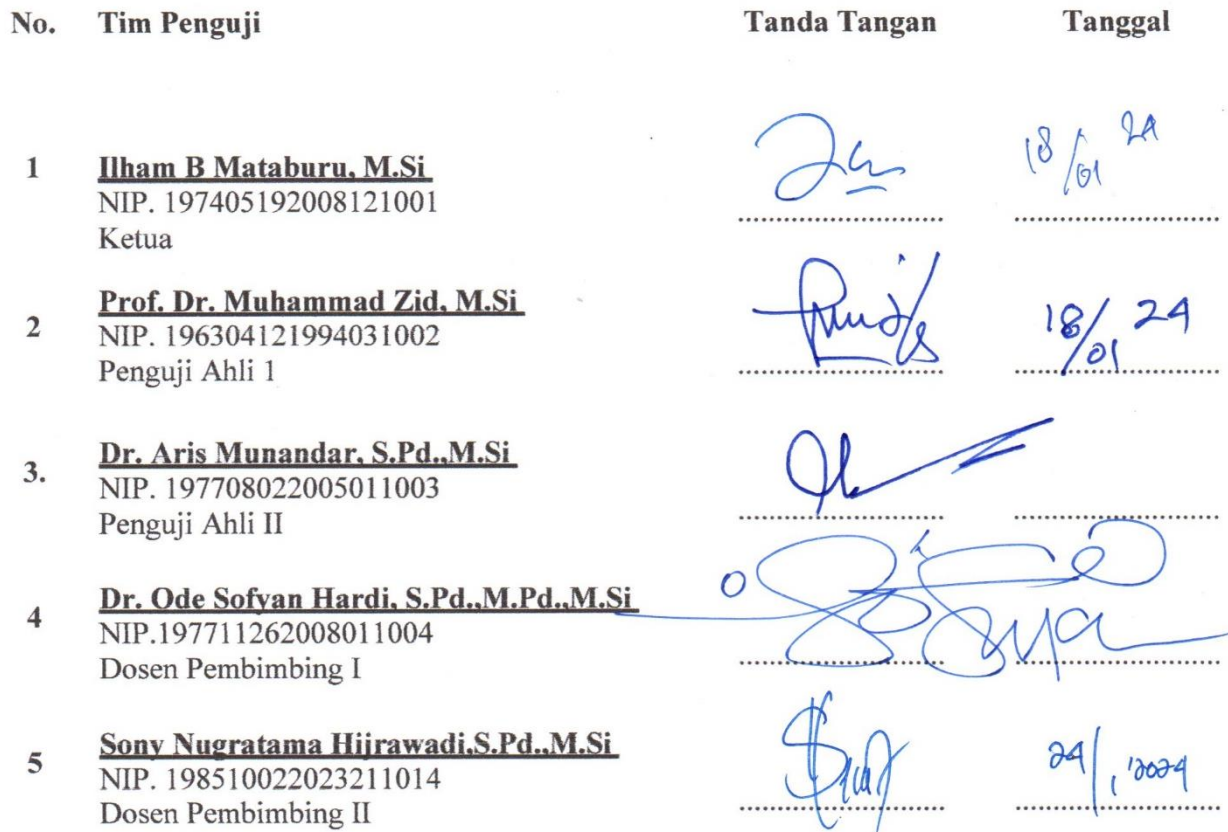 No. Tim Penguji Tanda Tangan Tanggal
1 Ilham B Mataburu, M.Si
NIP. 197405192008121001
Ketua
18/01 24
2 Prof. Dr. Muhammad Zid, M.Si
NIP. 196304121994031002
Penguji Ahli 1
18/01 24
3. Dr. Aris Munandar, S.Pd.,M.Si
NIP. 197708022005011003
Penguji Ahli II
4 Dr. Ode Sofyan Hardi, S.Pd.,M.Pd.,M.Si
NIP.197711262008011004
Dosen Pembimbing I
5 Sony Nugratama Hijrawadi,S.Pd.,M.Si
NIP. 198510022023211014
Dosen Pembimbing II
24/1 2024